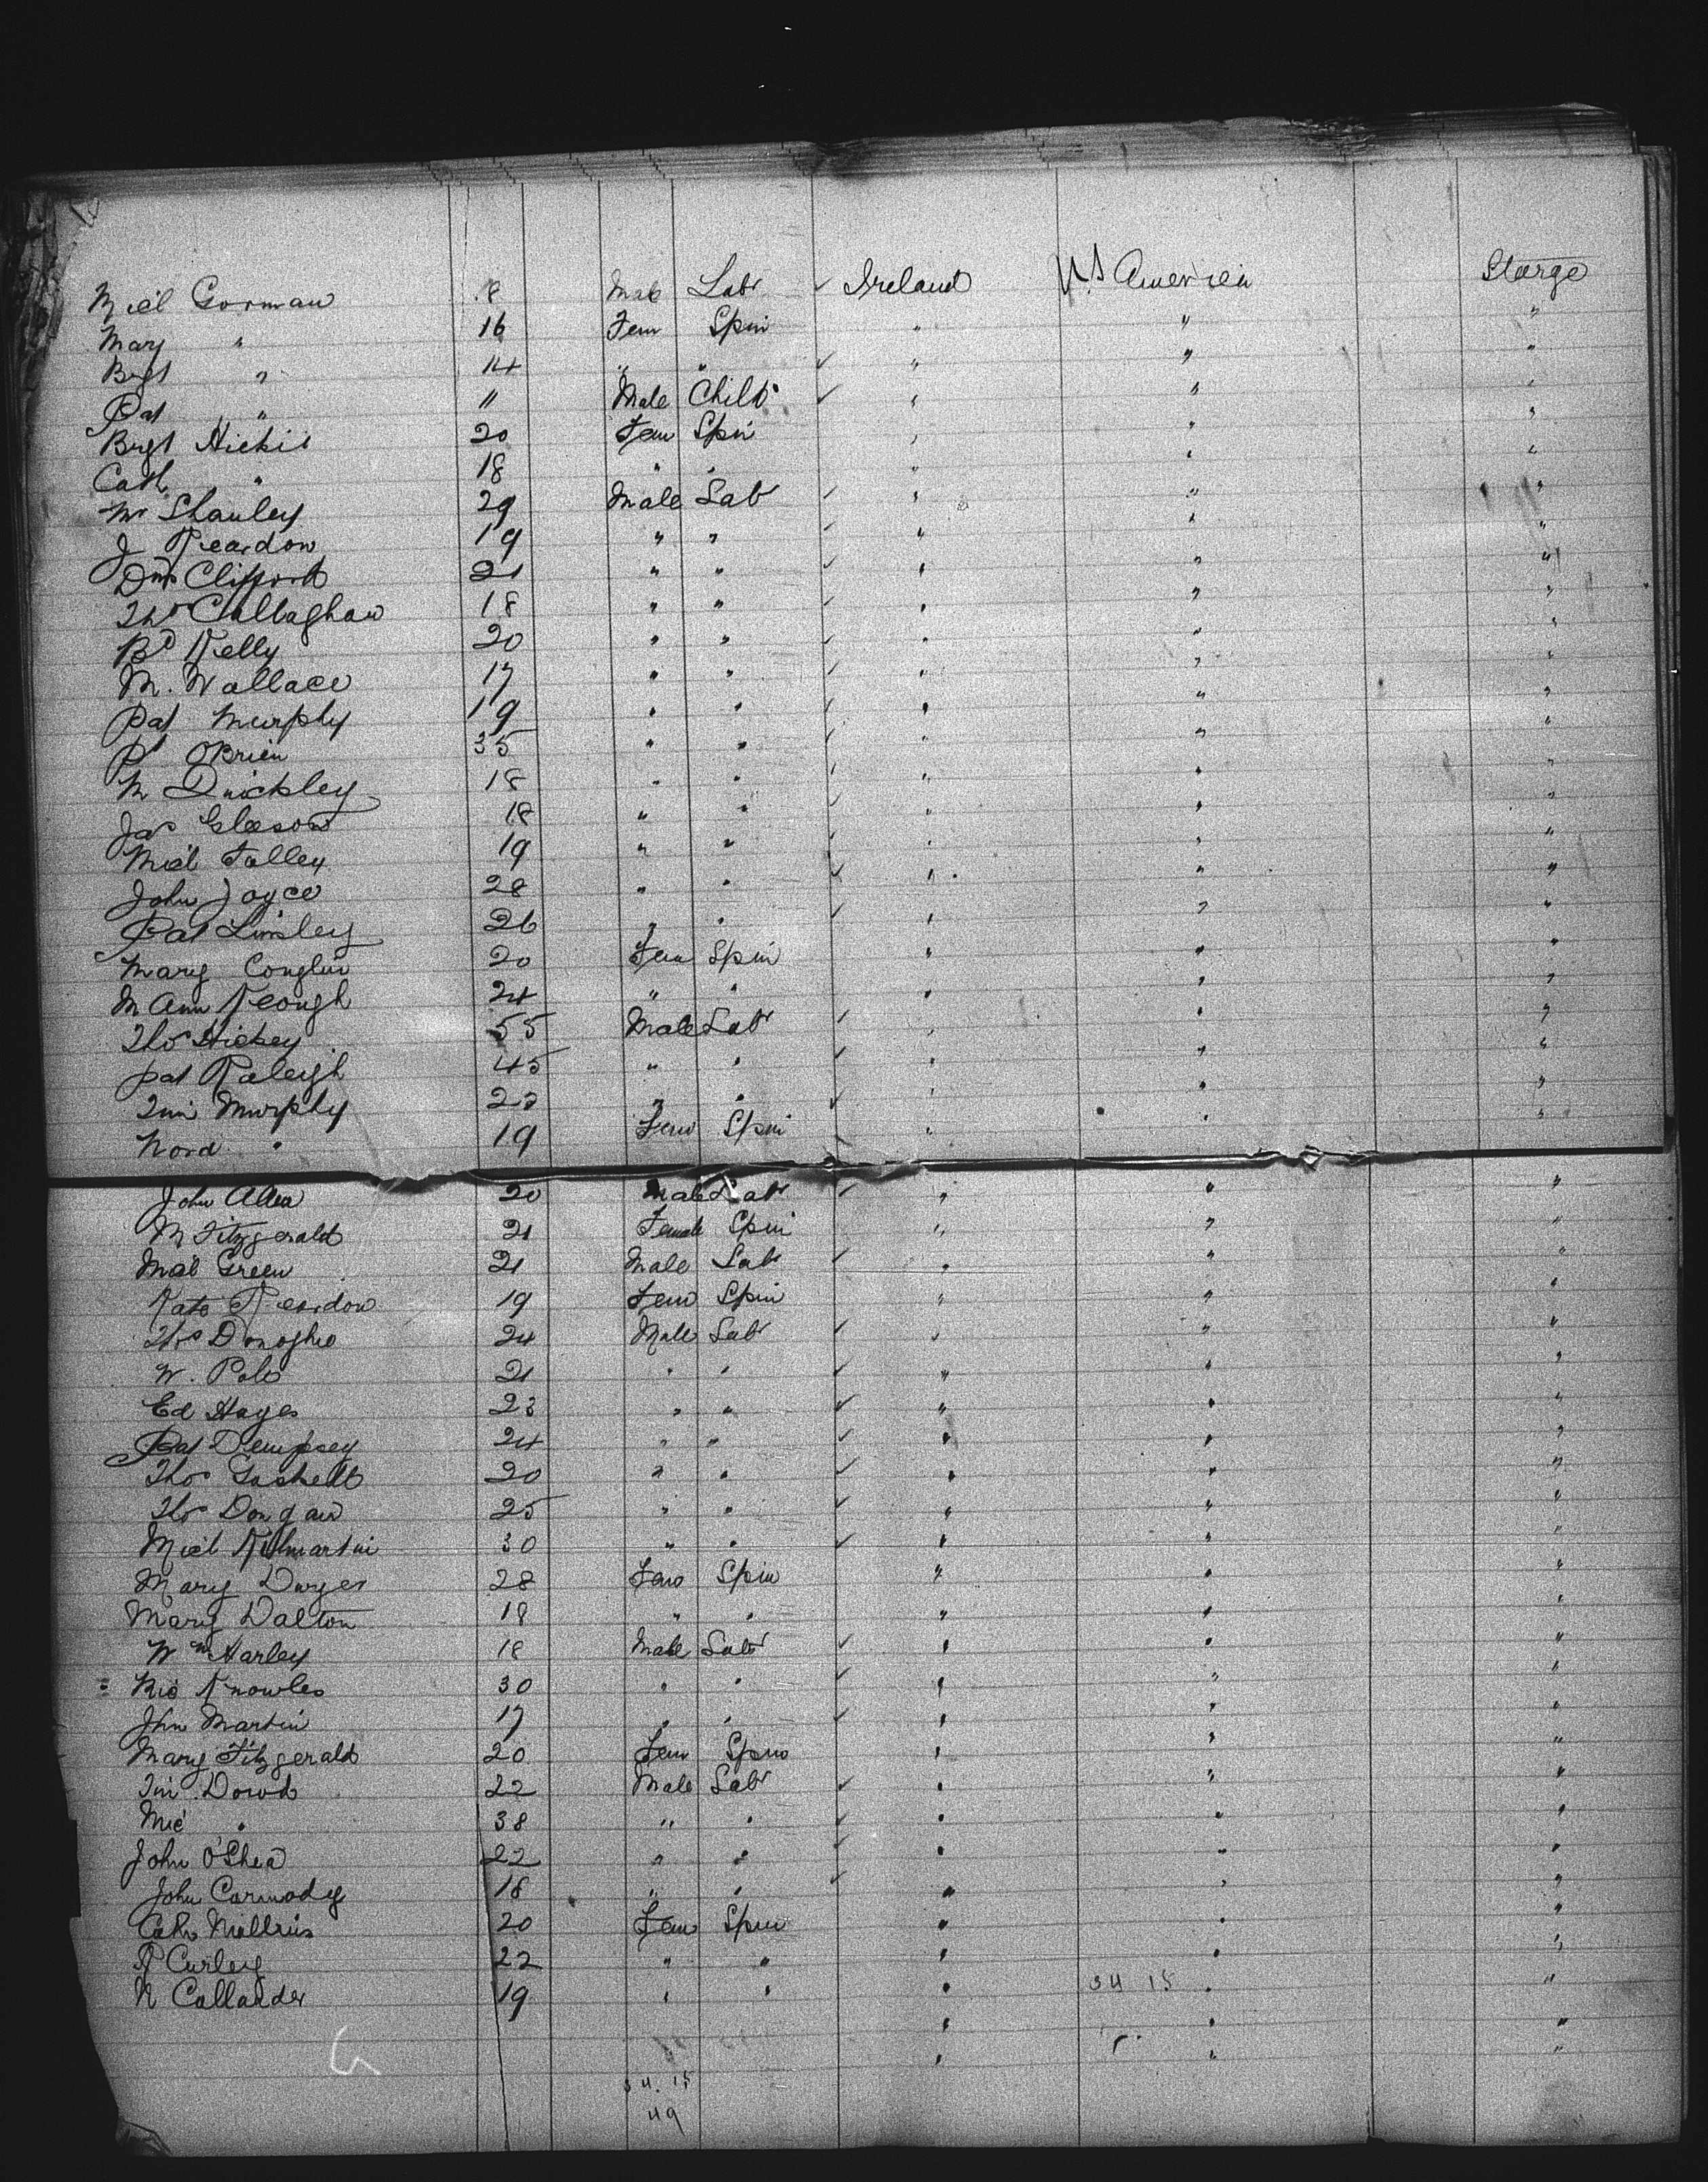 Micl Gorman 18 Male Lab ✓ Ireland U.S America Steerge
Mary " 16 Fem Spin " " "
Brgt " 14 " " ✓ " " "
Pat " 11 Male Child ✓ " " "
Brgt Hickie 20 Fem Spin " " "
Cath " 18 " " " " "
M Shanley 29 Male Lab ✓ " " "
J Reardon 19 " " ✓ " " "
Clifford 21 " " ✓ " " "
Thos Challaghan 18 " " ✓ " " "
Kelly 20 " " ✓ " " "
M. Wallace 17 " " ✓ " " "
Pat Murphy 19 " " ✓ " " "
Pt OBrien 35 " " ✓ " " "
M 18 " " ✓ " " "
Jas Gleeson 18 " " ✓ " " "
Micl Talley 19 " " ✓ " " "
John Joyce 28 " " ✓ " " "
Pat Linsley 26 " " ✓ " " "
Mary Conglin 20 Fem Spin " " "
M Ann Keough 24 " " " " "
Thos Hickey 55 Male Lab ✓ " " "
Pat Raleigh 45 " " ✓ " " "
Tim Murphy " " ✓ " " "
Nora " 19 Fem Spin " " "
John Allen 20 Male Lab ✓ " " "
M Fitzgerald 21 Female Spin " " "
Micl Green 21 Male Lab ✓ " " "
Kate Reardon 19 Fem Spin " " "
Thos Donoghue 24 Male Lab ✓ " " "
W. 21 " " ✓ " " "
Ed Hayes 23 " " ✓ " " "
Pat Dempsey 24 " " ✓ " " "
Thos Gaskell 20 " " ✓ " " "
Thos Dongan 25 " " ✓ " " "
Micl Kilmartin 30 " " ✓ " " "
Mary Dwyer 28 Fem Spin " " "
Mary Dalton 18 " " " " "
Wm Harley 18 Male Lab ✓ " " "
Mic Knowles 30 " " ✓ " " "
Jhn Martin 17 " " ✓ " " "
Mary Fitzgerald 20 Fem Spin " " "
Tim Dowd 22 Male Lab ✓ " " "
Mic " 38 " " ✓ " " "
John O'Shea 22 " " ✓ " " "
John Carmody 18 " " ✓ " " "
Cath 20 Fem Spin " " "
Curley 22 " " " " "
N Callander 19 " " " 34 15 " "
" " "
" " "
34. 15
49